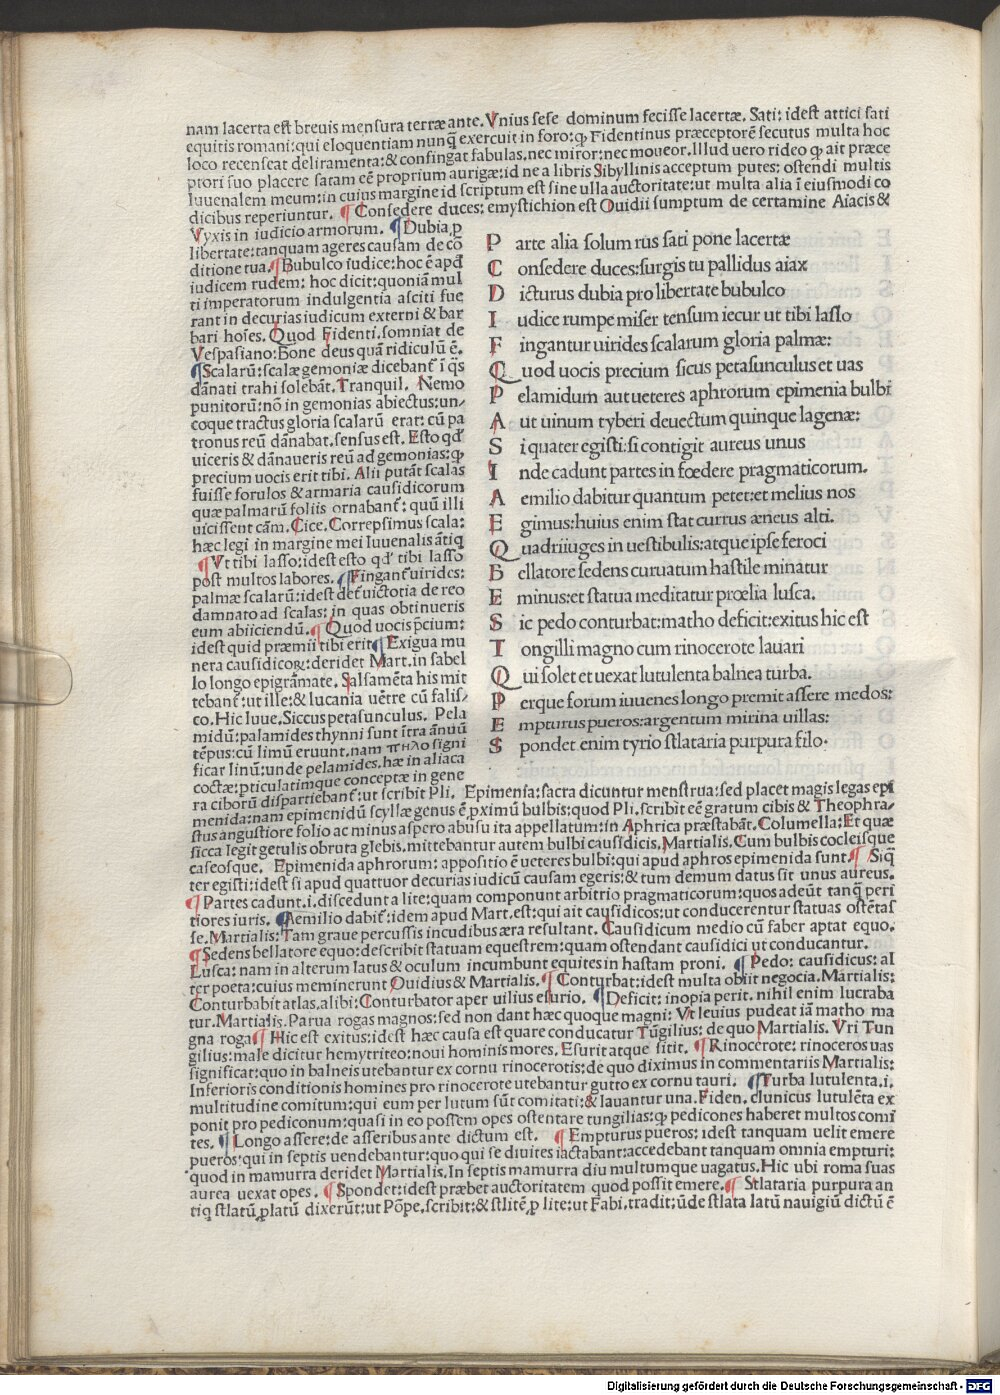 nam lacerta est breuis mensura terræ ante. Vnius sese dominum fecisse lacertæ. Sati: idest attici sati
equitis romani: qui eloquentiam nunq̃ exercuit in foro: ꝙ Fidentinus præceptorē secutus multa hoc
loco recenseat deliramenta: & confingat fabulas, nec miror: nec moueor. Illud uero rideo ꝙ ait præce
ptori suo placere satam eē proprium aurigæ: id ne a libris Sibyllinis acceptum putes: ostendi multis
Iuuenalem meum: in cuius margine id scriptum est sine ulla auctoritate: ut multa alia ī eiusmodi co
dicibus reperiuntur. ¶ Consedere duces: emystichion est Ouidii sumptum de certamine Aiacis &
Vyxis in iudicio armorum. ¶ Dubia, ꝑ
libertate: tanquam ageres causam de cō
ditione tua. ¶ Bubulco iudice: hoc ē apđ
iudicem rudem: hoc dicit: quoniā mul
ti imperatorum indulgentia asciti fue
rant in decurias iudicum externi & bar
bari hoīes. Quod Fidenti, somniat de
Vespasiano: Bone deus quā ridiculū ē.
¶ Scalarū: scalæ gemoniæ dicebant̃ ī q̃s
dānati trahi solebāt. Tranquil. Nemo
punitorū: nō in gemonias abiectus: un-
coque tractus gloria scalarū erat: cū pa
tronus reū dānabat. sensus est. Esto qđ
uiceris & dānaueris reū ad gemonias: ꝙ
precium uocis erit tibi. Alii putāt scalas
fuisse forulos & armaria causidicorum
quæ palmarū foliis ornabant̃: quū illi
uicissent cām. Cice. Correpsimus scala:
hæc legi in margine mei Iuuenalis ātiq
¶ Vt tibi lasso: idest esto qđ tibi lasso
post multos labores. ¶ Fingant̃ uirides:
palmæ scalarū: idest det̃ uictoria de reo
damnato ad scalas: in quas obtinueris
eum abiiciendū. ¶ Quod uocis p̄cium:
idest quid præmii tibi erit ¶ Exigua mu
nera causidicoꝝ: deridet Mart. in sabel
lo longo epigrāmate. Salsamēta his mit
tebant̃: ut ille: & lucania uētre cū falis/
co. Hic Iuue. Siccus petasunculus. Pela
midū: palamides thynni sunt īt̃ra ānuū
tēpus: cū limū eruunt. nam πηλο signi
ficar linū: unde pelamides, hæ in aliaca
coctæ: ꝑticulatimque conceptæ in gene
ra ciborū dispartiebant̃: ut scribit Pli. Epimenia: sacra dicuntur menstrua: sed placet magis legas epi
menida: nam epimenidū scyllæ genus ē ꝓximū bulbis: quod Pli. scribit eē gratum cibis & Theophra/
stus angustiore folio ac minus aspero abusu ita appellatum: in Aphrica præstabāt. Columella: Et quæ
sicca legit getulis obruta glebis. mittebantur autem bulbi causidicis. Martialis. Cum bulbis cocleisque
caseosque. Epimenida aphrorum: appositio ē ueteres bulbi: qui apud aphros epimenida sunt ¶ Siq̃
ter egisti: idest si apud quattuor decurias iudicū causam egeris: & tum demum datus sit unus aureus.
¶ Partes cadunt. i. discedunt a lite: quam componunt arbitrio pragmaticorum: quos adeūt tanq̃ peri
tiores iuris. ¶ Aemilio dabit̃: idem apud Mart. est: qui ait causidicos: ut conducerentur statuas ostētas
se. Martialis: Tam graue percussis incudibus æra resultant. Causidicum medio cū faber aptat equo.
¶ Sedens bellatore equo: describit statuam equestrem: quam ostendant causidici ut conducantur.
Lusca: nam in alterum latus & oculum incumbunt equites in hastam proni. ¶ Pedo: causidicus: al
ter poeta: cuius meminerunt Ouidius & Martialis. ¶ Conturbat: idest multa obiit negocia. Martialis:
Conturbabit atlas. alibi: Conturbator aper uilius esurio. ¶ Deficit: inopia perit. nihil enim lucraba
tur. Martialis. Parua rogas magnos: sed non dant hæc quoque magni: Vt leuius pudeat iā matho ma
gna roga ¶ Hic est exitus: idest hæc causa est quare conducatur Tūgilius: de quo Martialis. Vri Tun
gilius: male dicitur hemytriteo: noui hominis mores. Esurit atque sitit. ¶ Rinocerote: rinoceros uas
significat: quo in balneis utebantur ex cornu rinocerotis: de quo diximus in commentariis Martialis:
Inferioris conditionis homines pro rinocerote utebantur gutto ex cornu tauri. ¶ Turba lutulenta. i.
multitudine comitum: qui eum per lutum sūt comitati: & lauantur una. Fiden. clunicus lutulēta ex
ponit pro pediconum: quasi in eo possem opes ostentare tungilias: ꝙ pedicones haberet multos comi
tes. ¶ Longo assere: de asseribus ante dictum est. ¶ Empturus pueros: idest tanquam uelit emere
pueros: qui in septis uendebantur: quo qui se diuites iactabant: accedebant tanquam omnia empturi:
quod in mamurra deridet Martialis. In septis mamurra diu multumque uagatus. Hic ubi roma suas
aurea uexat opes. ¶ Spondet: idest præbet auctoritatem quod possit emere. ¶ Stlataria purpura an
tiq̃ stlatū ꝓ latū dixerūt: ut Pōpe. scribit: & stlitē ꝓ lite: ut Fabi. tradit: ūde stlata latū nauigiū dictū ē
P arte alia solum rus sati pone lacertæ
C onsedere duces: surgis tu pallidus aiax
D icturus dubia pro libertate bubulco
I udice rumpe miser tensum iecur ut tibi lasso
F ingantur uirides scalarum gloria palmæ:
Q uod uocis precium siccus petasunculus et uas
P elamidum aut ueteres aphrorum epimenia bulbi
A ut uinum tyberi deuectum quinque lagenæ:
S i quater egisti: si contigit aureus unus
I nde cadunt partes in fœdere pragmaticorum.
A emilio dabitur quantum petet: et melius nos
E gimus: huius enim stat currus æneus alti.
Q uadriiuges in uestibulis: atque ipse feroci
B ellatore sedens curuatum hastile minatur
E minus: et statua meditatur prœlia lusca.
S ic pedo conturbat: matho deficit: exitus hic est
T ongilli magno cum rinocerote lauari
Q ui solet et uexat lutulenta balnea turba.
P erque forum iuuenes longo premit assere medos:
E mpturus pueros: argentum mirina uillas:
S pondet enim tyrio stlataria purpura filo.
Digitalisierung gefördert durch die Deutsche Forschungsgemeinschaft - DFG